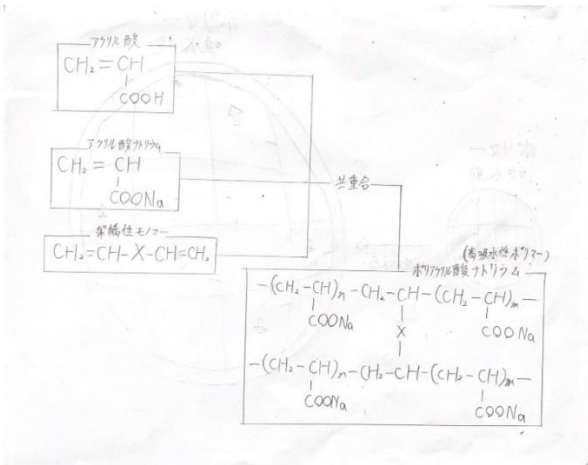 アクリル酸
CH₂=CH
COOH
アクリル酸ナトリウム
CH₂=CH
COONa
架橋性モノマー
CH₂=CH-X-CH=CH₂
共重合
(高吸水性ポリマー)
ポリアクリル酸ナトリウム
-(CH₂-CH)n-CH₂-CH-(CH₂-CH)m-
COONa
X
COONa
-(CH₂-CH)n-CH₂-CH-(CH₂-CH)m-
COONa
COONa